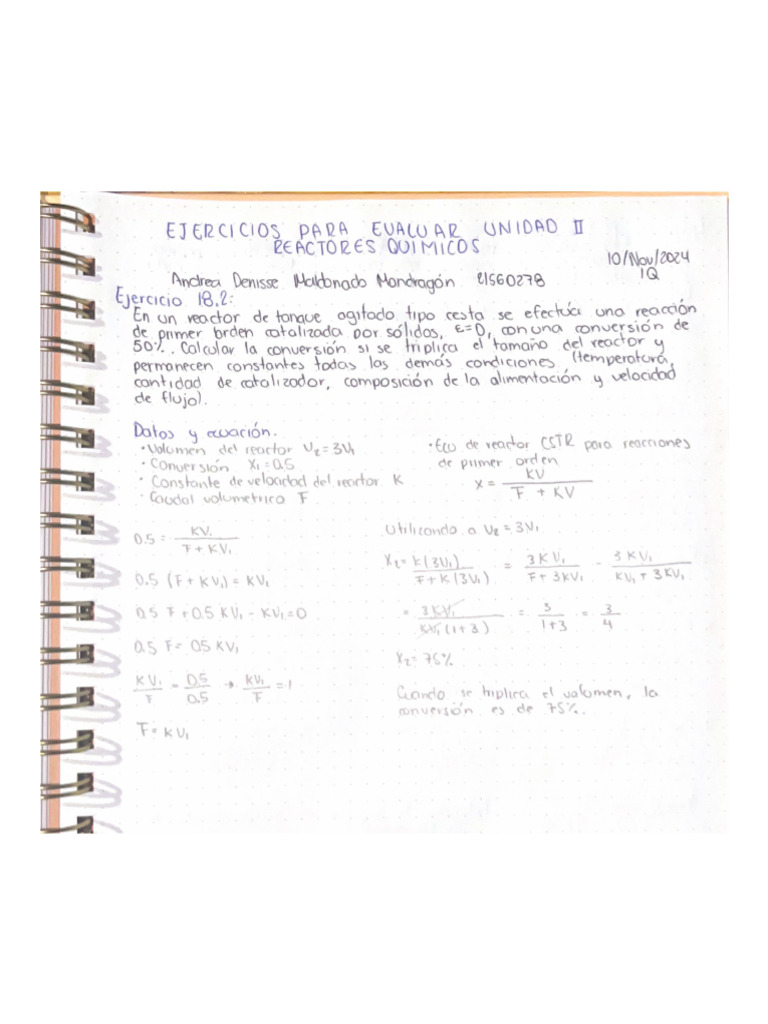 EJERCICIOS PARA EVALUAR UNIDAD II
REACTORES QUIMICOS
10/Nov/2024
IQ
Andrea Denisse Maldonado Mondragón 21560278
Ejercicio 18.2:
En un reactor de tanque agitado tipo cesta se efectúa una reacción
de primer orden catalizada por sólidos, ε=0, con una conversión de
50%. Calcular la conversión si se triplica el tamaño del reactor y
permanecen constantes todas las demás condiciones (temperatura,
cantidad de catalizador, composición de la alimentación y velocidad
de flujo).
Datos y ecuación.
• Volumen del reactor V₂=3V₁
• Conversión X₁=0.5
• Constante de velocidad del reactor K
• Caudal volumetrico F
• Ecu de reactor CSTR para reacciones
de primer orden
X = KV / F + KV
0.5 = KV₁ / F + KV₁
0.5 (F + KV₁) = KV₁
0.5 F + 0.5 KV₁ - KV₁ = 0
0.5 F = 0.5 KV₁
KV₁ / F = 0.5 / 0.5 → KV₁ / F = 1
F = KV₁
Utilizando a V₂ = 3V₁
X₂ = K(3V₁) / F + K(3V₁) = 3KV₁ / F + 3KV₁ = 3KV₁ / KV₁ + 3KV₁
= 3KV₁ / KV₁(1+3) = 3 / 1+3 = 3 / 4
X₂ = 75%
Cuando se triplica el volumen, la
conversión es de 75%.